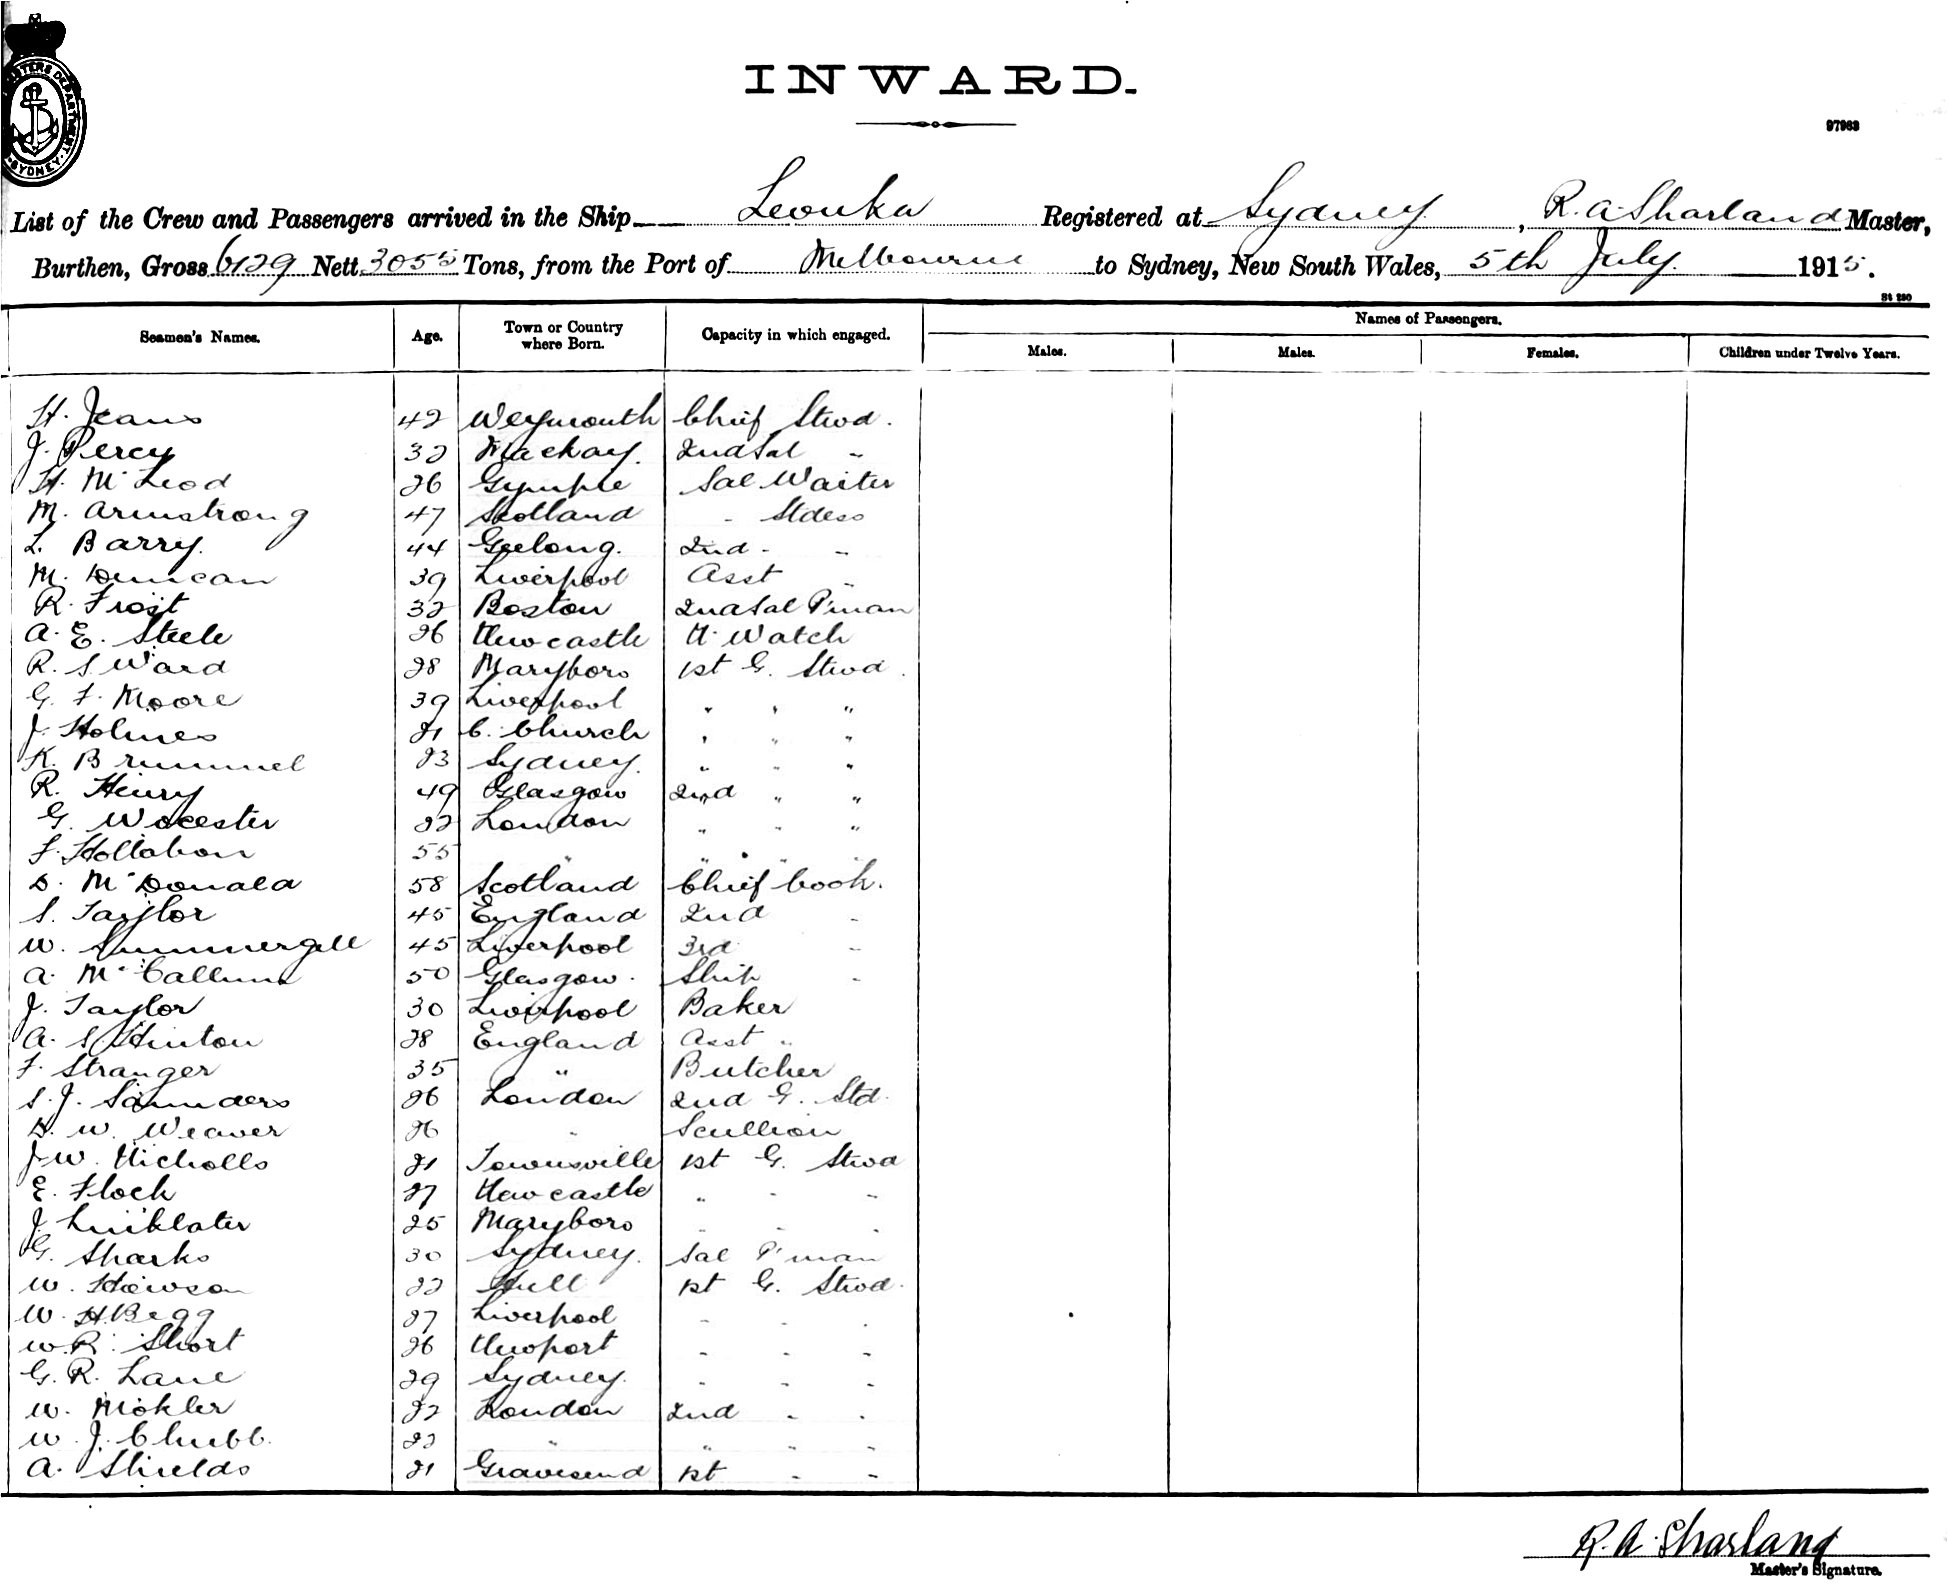 MASTERS DEPARTMENT. SYDNEY
INWARD.
97963
List of the Crew and Passengers arrived in the Ship Levuka Registered at Sydney, R. A. Sharland Master,
Burthen, Gross 6129 Nett 3055 Tons, from the Port of Melbourne to Sydney, New South Wales, 5th July 1915.
St 230
Seamen's Names. Age. Town or Country where Born. Capacity in which engaged. Names of Passengers.
Males. Males. Females. Children under Twelve Years.
H. Jeans 42 Weymouth Chief Stwd.
J. Percy 32 Mackay. 2nd Sal "
H. McLeod 26 Gympie Sal Waiter
M. Armstrong 47 Scotland " Stdess
L. Barry. 44 Geelong. 2nd " "
M. Duncan 39 Liverpool Asst "
R. Frost 32 Boston 2nd Sal P'man
A. E. Steele 26 Newcastle N. Watch
R. S. Ward 28 Maryboro 1st G. Stwd.
G. F. Moore 39 Liverpool " " "
J. Holmes 21 C. Church " " "
K. Brummel 23 Sydney. " " "
R. Henry 49 Glasgow 2nd " "
G. Wocester 22 London " " "
F. Hollahon 55 " " " "
D. McDonald 58 Scotland Chief Cook.
S. Taylor 45 England 2nd "
W. Summergill 45 Liverpool 3rd "
A. McCallum 50 Glasgow. Ship "
J. Taylor 30 Liverpool Baker
A. S. Hinton 28 England Asst "
F. Stranger 35 " Butcher
S. J. Saunders 26 London 2nd G. Std.
D. W. Weaver 26 " Scullion
J. W. Nicholls 21 Townsville 1st G. Stwd
E. Flock 27 Newcastle " " "
J. Linklater 25 Maryboro " " "
G. Sharks 30 Sydney. Sal P'man
W. Howson 22 Hull 1st G. Stwd.
W. H. Begg 27 Liverpool " " "
W. R. Short 26 Newport " " "
G. R. Lane 29 Sydney. " " "
W. Mokler 22 London 2nd " "
W. J. Chubb. 22 " " " "
A. Shields 21 Gravesend 1st " "
R. A. Sharland
Master's Signature.